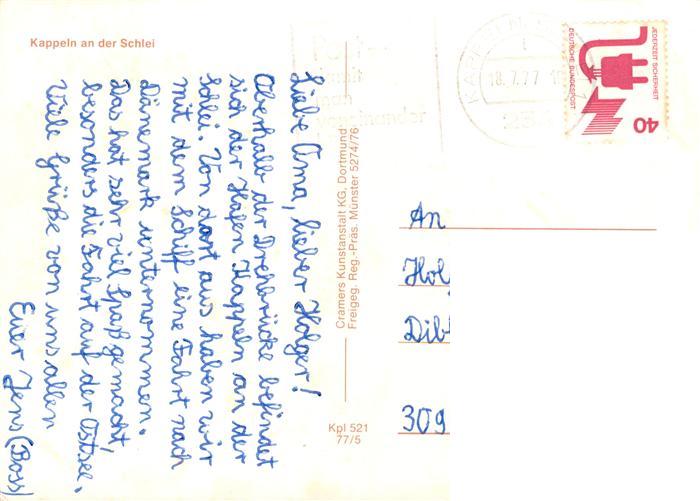 Kappeln an der Schlei
Liebe Oma, lieber Holger!
Oberhalb der Drehbrücke befindet
sich der Hafen Kappeln an der
Schlei. Von dort aus haben wir
mit dem Schiff eine Fahrt nach
Dänemark unternommen.
Das hat sehr viel Spaß gemacht,
besonders die Fahrt auf der Ostsee.
Viele Grüße von uns allen
Euer Jens (Boss)
Cramers Kunstanstalt KG, Dortmund
Freigeg. Reg.-Präs. Münster 5274/76
Kpl 521
77/5
KAPPELN
18.7.77
voneinander
JEDERZEIT SICHERHEIT
DEUTSCHE BUNDESPOST
40
An
Hol
Dib
309